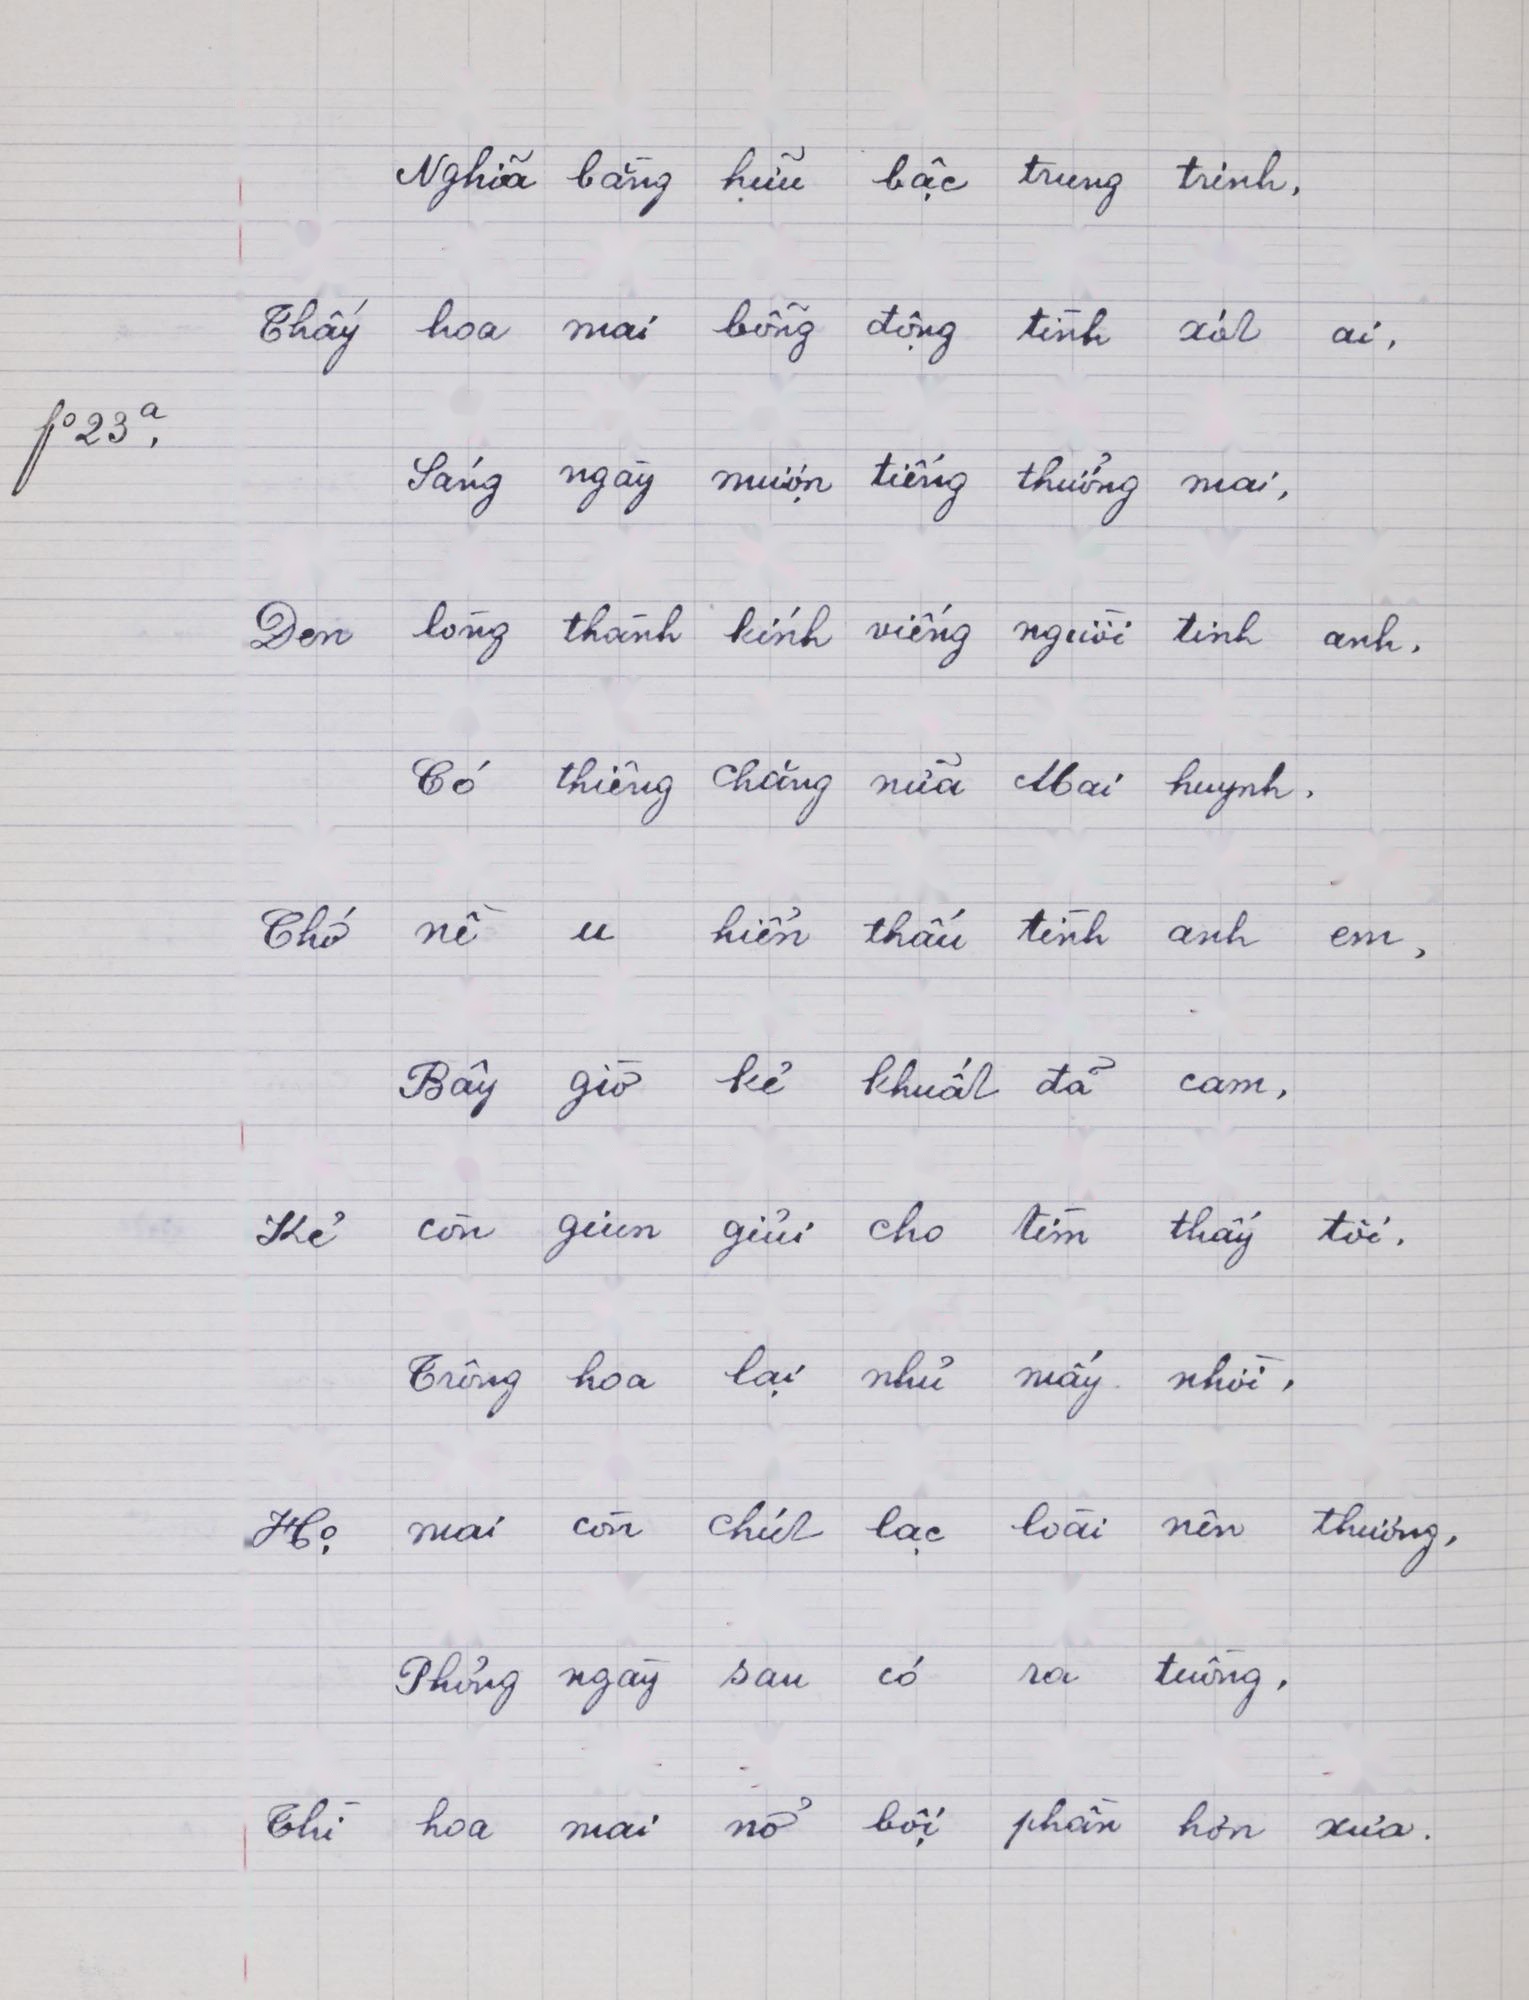 Nghĩa bằng hữu bậc trung trinh,
Thấy hoa mai bỗng động tình xót ai,
fº 23ª,
Sáng ngày mượn tiếng thưởng mai,
Đen lòng thành kính viếng người tinh anh.
Có thiêng chăng nữa Mai huynh.
Chớ nề u hiển thấu tình anh em,
Bây giờ kẻ khuất đã cam,
Kẻ còn giun giủi cho tìm thấy tôi.
Trông hoa lại nhủ mấy nhời,
Họ mai còn chút lạc loài nên thương,
Phỏng ngày sau có ra tuồng,
Thì hoa mai nở bội phần hơn xưa.